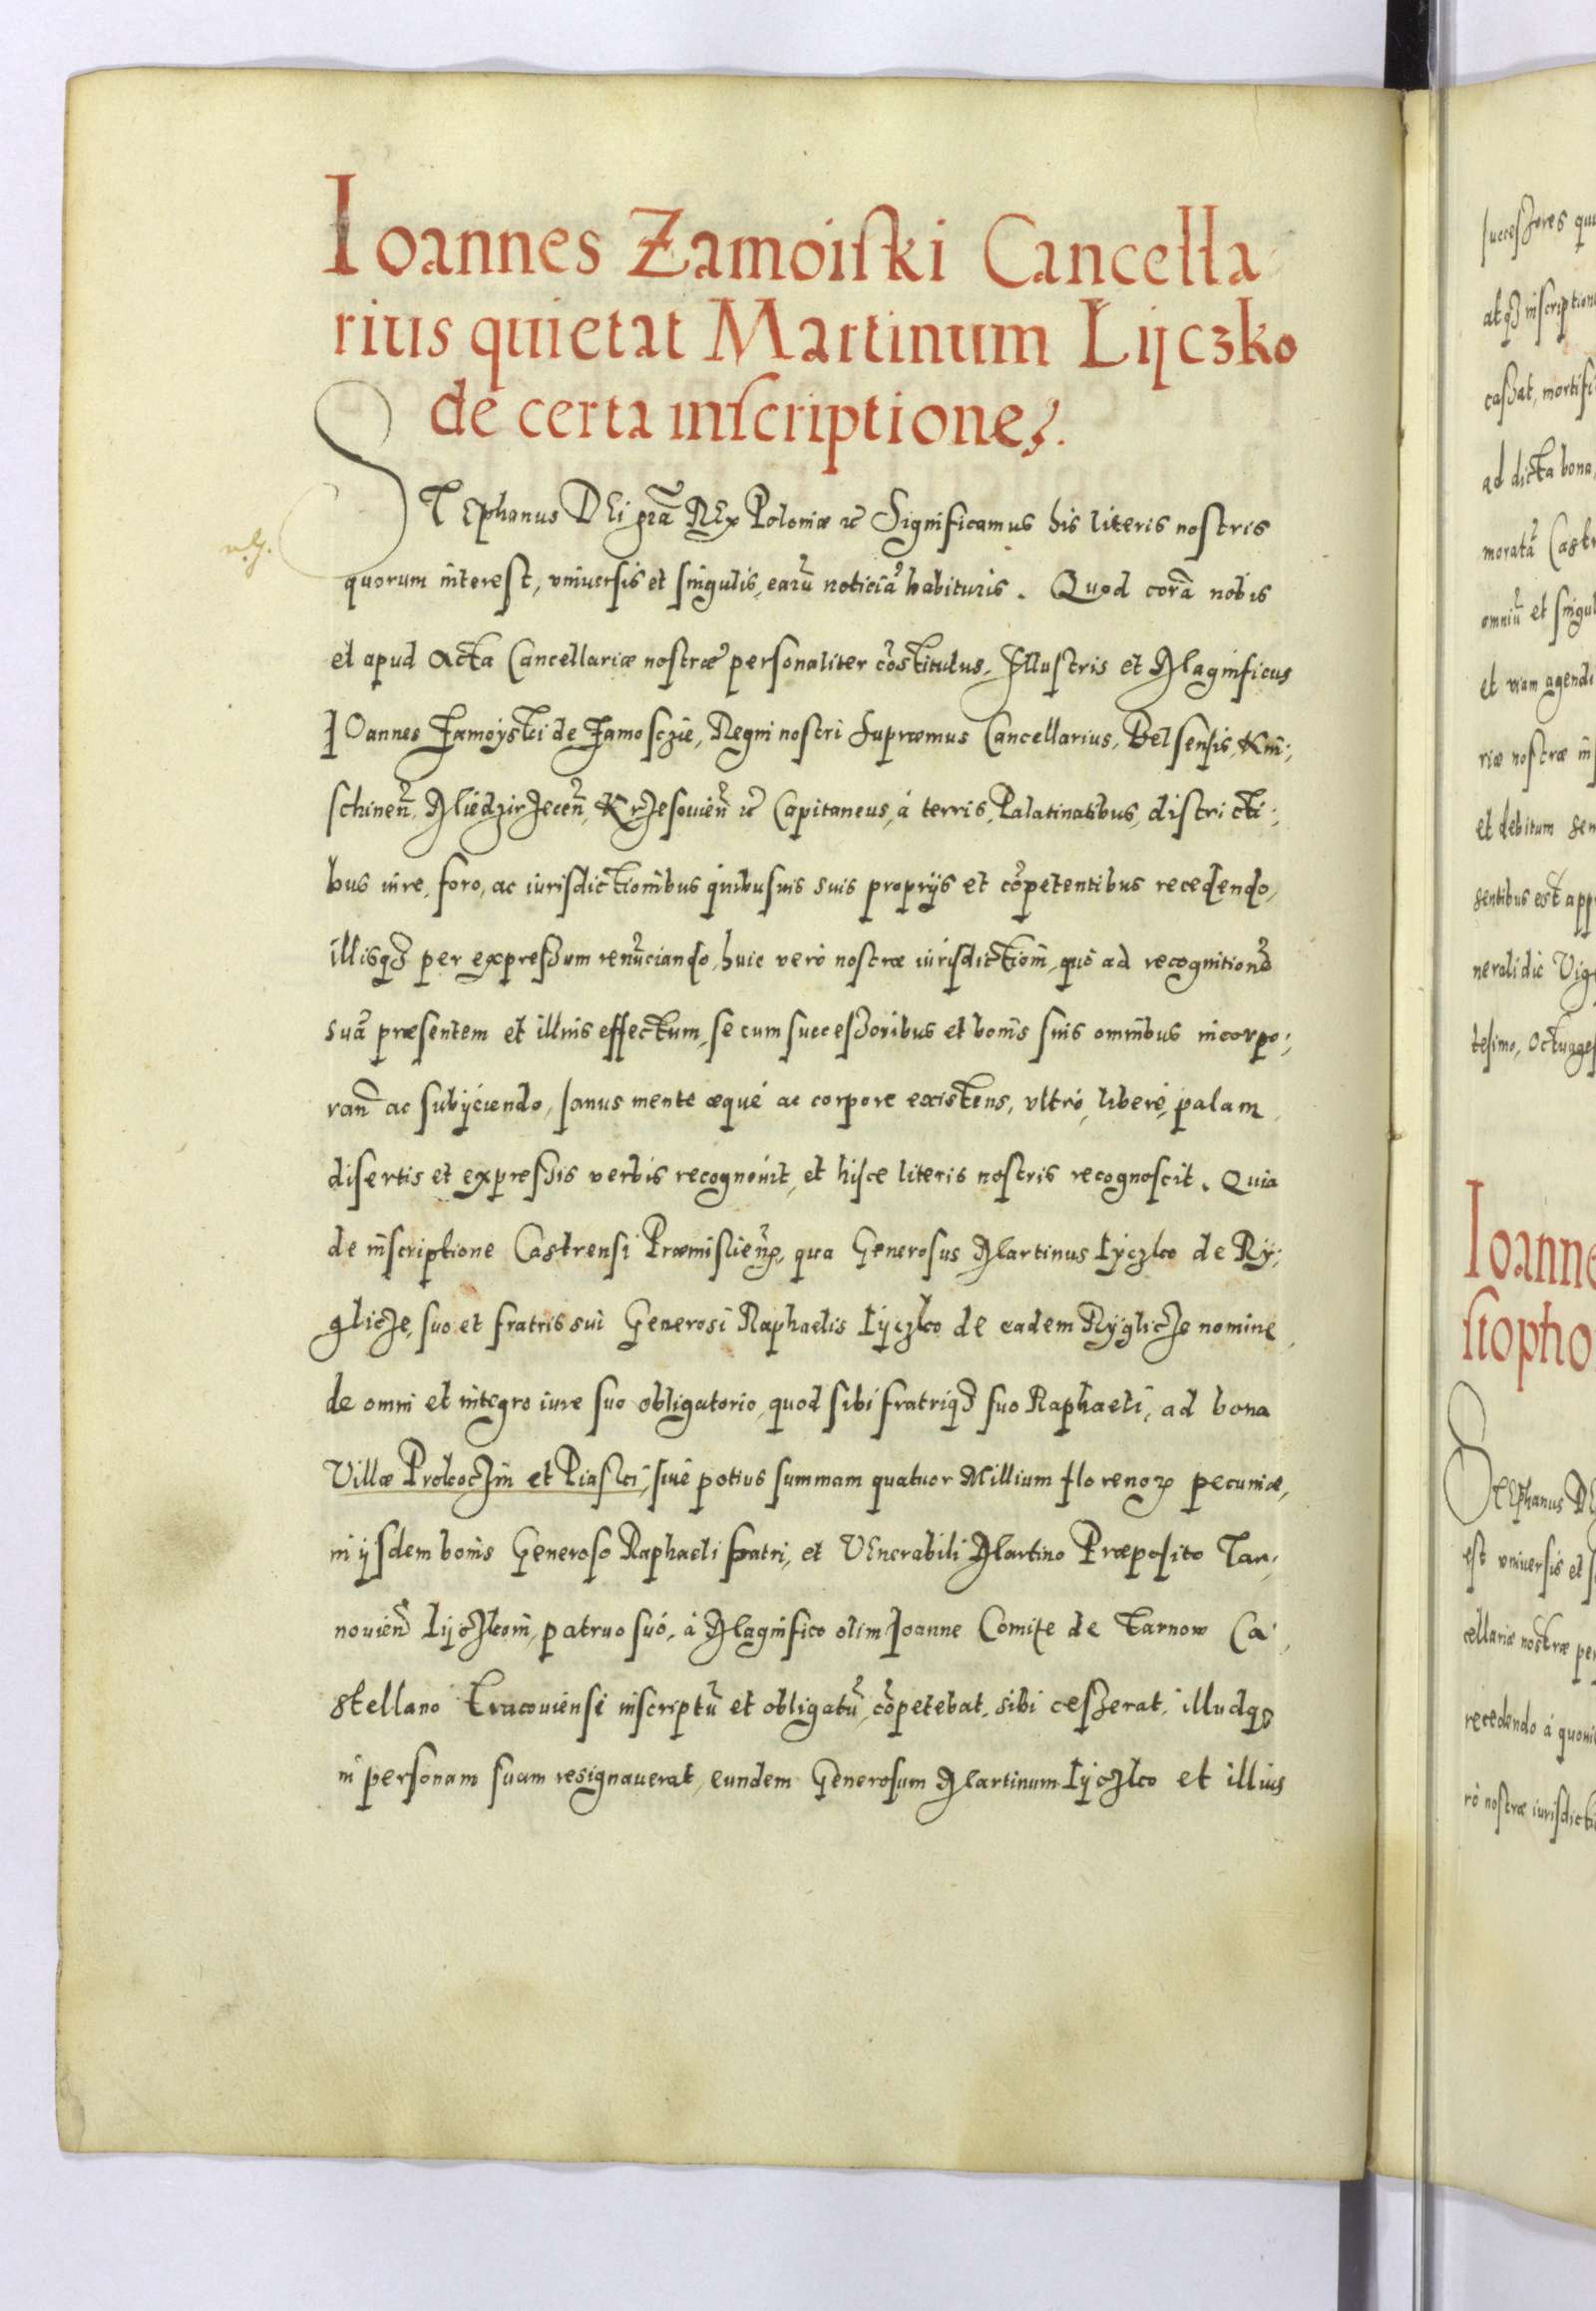 Ioannes Zamoiſki Cancella
rius quietat Martinum Lijczko
de certa inſcriptione.
STEphanus DEi grã REx Poloniæ &c Significamus his literis noſtris
quorum interest, vniuerſis et ſingulis, earũ noticiã habituris. Quod corã nobis
et apud Acta Cancellariæ noſtræ personaliter cõstitutus, Illuſtris et Magnificus
IOannes Zamoyski de Zamoſczie, Regni noſtri Supræmus Cancellarius, Belſenſis, Kni:
schineñ, Miedzirzeceñ, Krzeſouieñ &c Capitaneus, á terris, Palatinatibus, diſtricti:
bus iure, foro, ac iuriſdictionibus quibuſuis suis proprijs et cõpetentibus recedendo,
illisq3 per expreſsum renũciando, huic veró noſtræ iuriſdictioni, quó ad recognitionẽ
suã præsentem et illius effectum, se cum ſucceſsoribus et bonis ſuis omnibus incorpo:
rañ ac ſubijciendo, ſanus mente æqué ac corpore existens, vltró, liberé, palam
diſertis et expreſsis verbis recognouit, et hiſce literis noſtris recognoſcit. Quia
de inſcriptione Caſtrenſi Præmiſlieñ, qua Generoſus Martinus Lyczko de Ry:
glicze, ſuo et fratris sui Generosi Raphaelis Lijczko de eadem Ryglicze nomine
de omni et integro iure ſuo obligatorio, quod ſibi fratriq3 ſuo Raphaeli, ad bona
Villæ Prokoczin et Piaſki, ſiue potius summam quatuor Millium florenoꝝ pecuniæ,
in ijſdem bonis Generoſo Raphaeli fratri, et VEnerabili Martino Præpoſito Tar:
nouieñ Lijczkoni, patruo ſuó, á Magnifico olim Ioanne Comite de Tarnow Ca:
stellano Cracouienſi inſcriptũ et obligatũ, cõpetebat, sibi ceſserat, illudq3
in personam ſuam resignauerat, eundem Generoſum Martinum Lijczko et illius
ſucceſsores
atq3 inſcription
caſsat,
ad dicta bona,
moratã
omniũ et ſingul
et viam agendi
riæ noſtræ in
et debitum
sentibus est
tesimo,
Ioanne
ſtopho
STEphanus
est vniuerſis et
cellariæ noſtræ
recedendo á
ró noſtræ